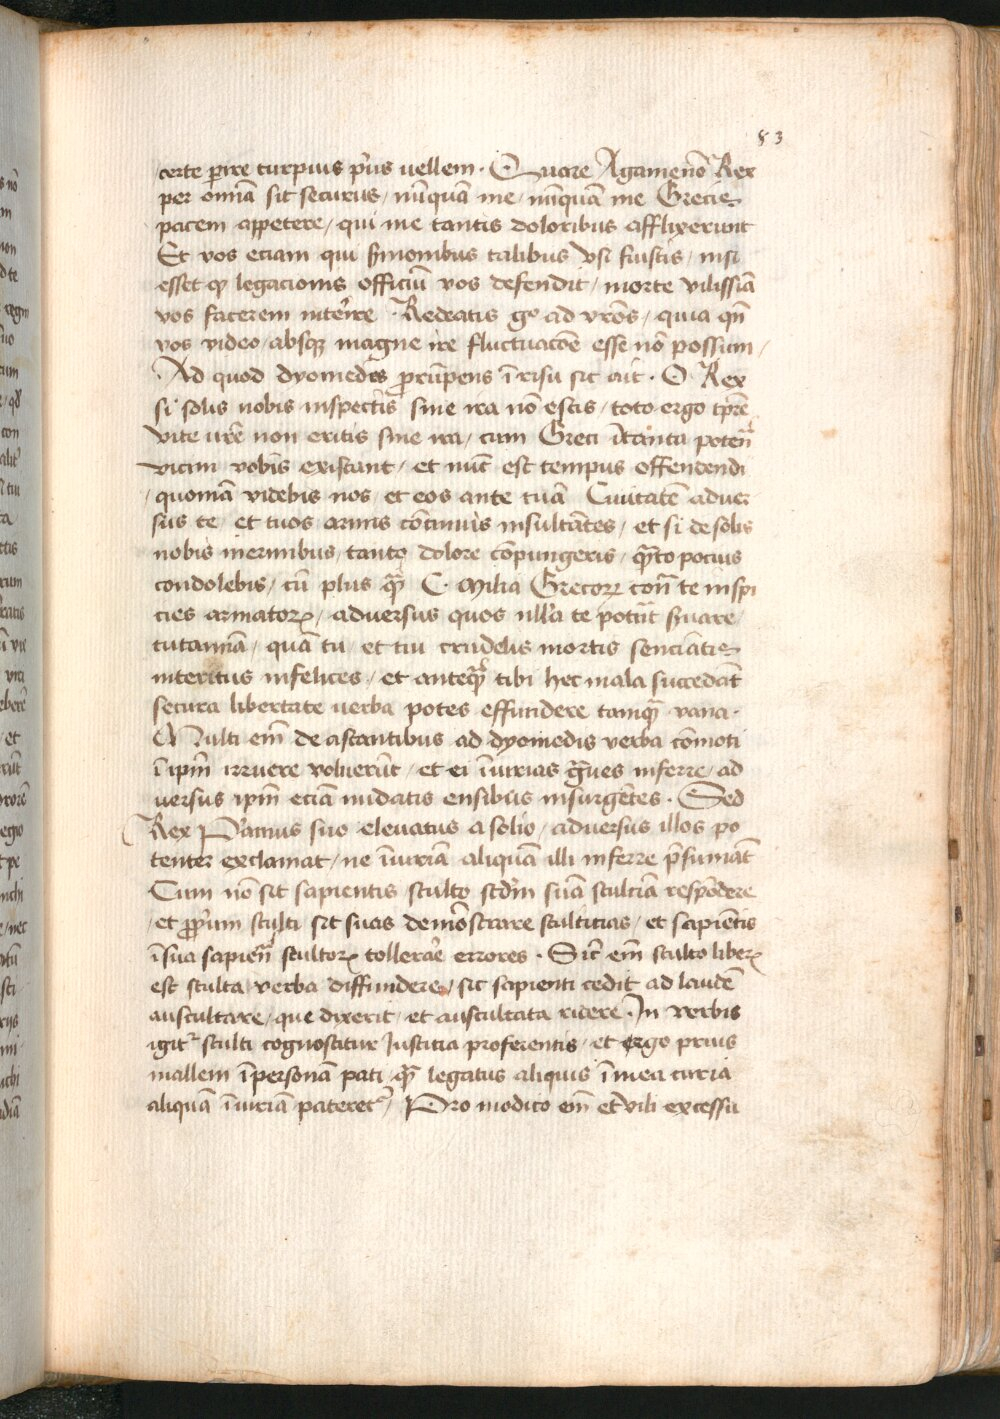 83
certe pire turpius p'us uellem. Quare Agameno͞ Rex
per omnia͞ sit securus / nu͞quam me / nu͞qua͞ me Grecie
pacem appetere / qui me tantis doloribus afflixerunt
Et vos eciam qui s͞monibus talibus vsi fuistis / nisi
esset q͛ legacionis officiu͞ vos defendit / morte vilissia͞
vos facerem inte'ire . Redeatis g° ad vr͞os / quia qn͞
vos video / absq͛ magne ire fluctuaco͞e esse no͞ possum /
Ad quod dyomedes prru͞pens i͞ risu sic ait . O Rex
si solis nobis inspectis sine ira no͞ estis / toto ergo tp͞re
vite ur͞e non eritis sine ira / cum Greci i͞ tanta poten͞
vicini vobis existant / et nu͞c est tempus offendendi
/ quonia͞ videbis nos / et eos ante tua͞ Ciuitate͞ aduer
sus te / et tuos armis co͞tinuis insulta͞tes / et si de solis
nobis inermibus / tanto dolore co͞pungeris / qua͞to pocius
condolebis / cu͞ plus qua͞ C. Milia Grecor͛ con͞ te inspi
cies armator͛ / aduersus quos ulla te potu͞t s͞uare /
tutanna͞ / qua͞ tu / et tui crudelis mortis sencia͞tis
interitus infelices / et anteq͞ tibi hec mala succeda͞t
secura libertate uerba potes effundere tamq͞ vana .
Multi em͞ de astantibus ad dyomedis verba co͞moti
i͞ ip͞m irruere voluer͞ut / et ei i͞iurias g͞ues inferre / ad
uersus ip͞m ecia͞ nudatis ensibus insurge͞tes . Sed
Rex P'amus suo eleuatus a solio / aduersus illos po
tenter exclamat / ne i͞iuria͞ aliqua͞ illi inferre p͞sumat͞
Cum no͞ sit sapientis stulto scd͞m sua͞ stultia͞ respo͞dere
/ et pp͞rium stulti sit suas demo͞strare stulticias / et sapie͞tis
i͞ sua sapien͞ stultor͛ tollera'e errores . Sic͞ em͞ stulto liber͛
est stulta verba diffundere / sic sapienti cedit ad laude͞
auscultare / que dixerit / et auscultata ridere . In verbis
igit͛ stulti cognoscitur Iusticia proferentis / et ergo prius
mallem i͞ persona͞ pati / qua͞ legatus aliquis i͞ mea curia
aliqua͞ i͞iuria͞ pateret͛ / Pro modico em͞ et vili excessu